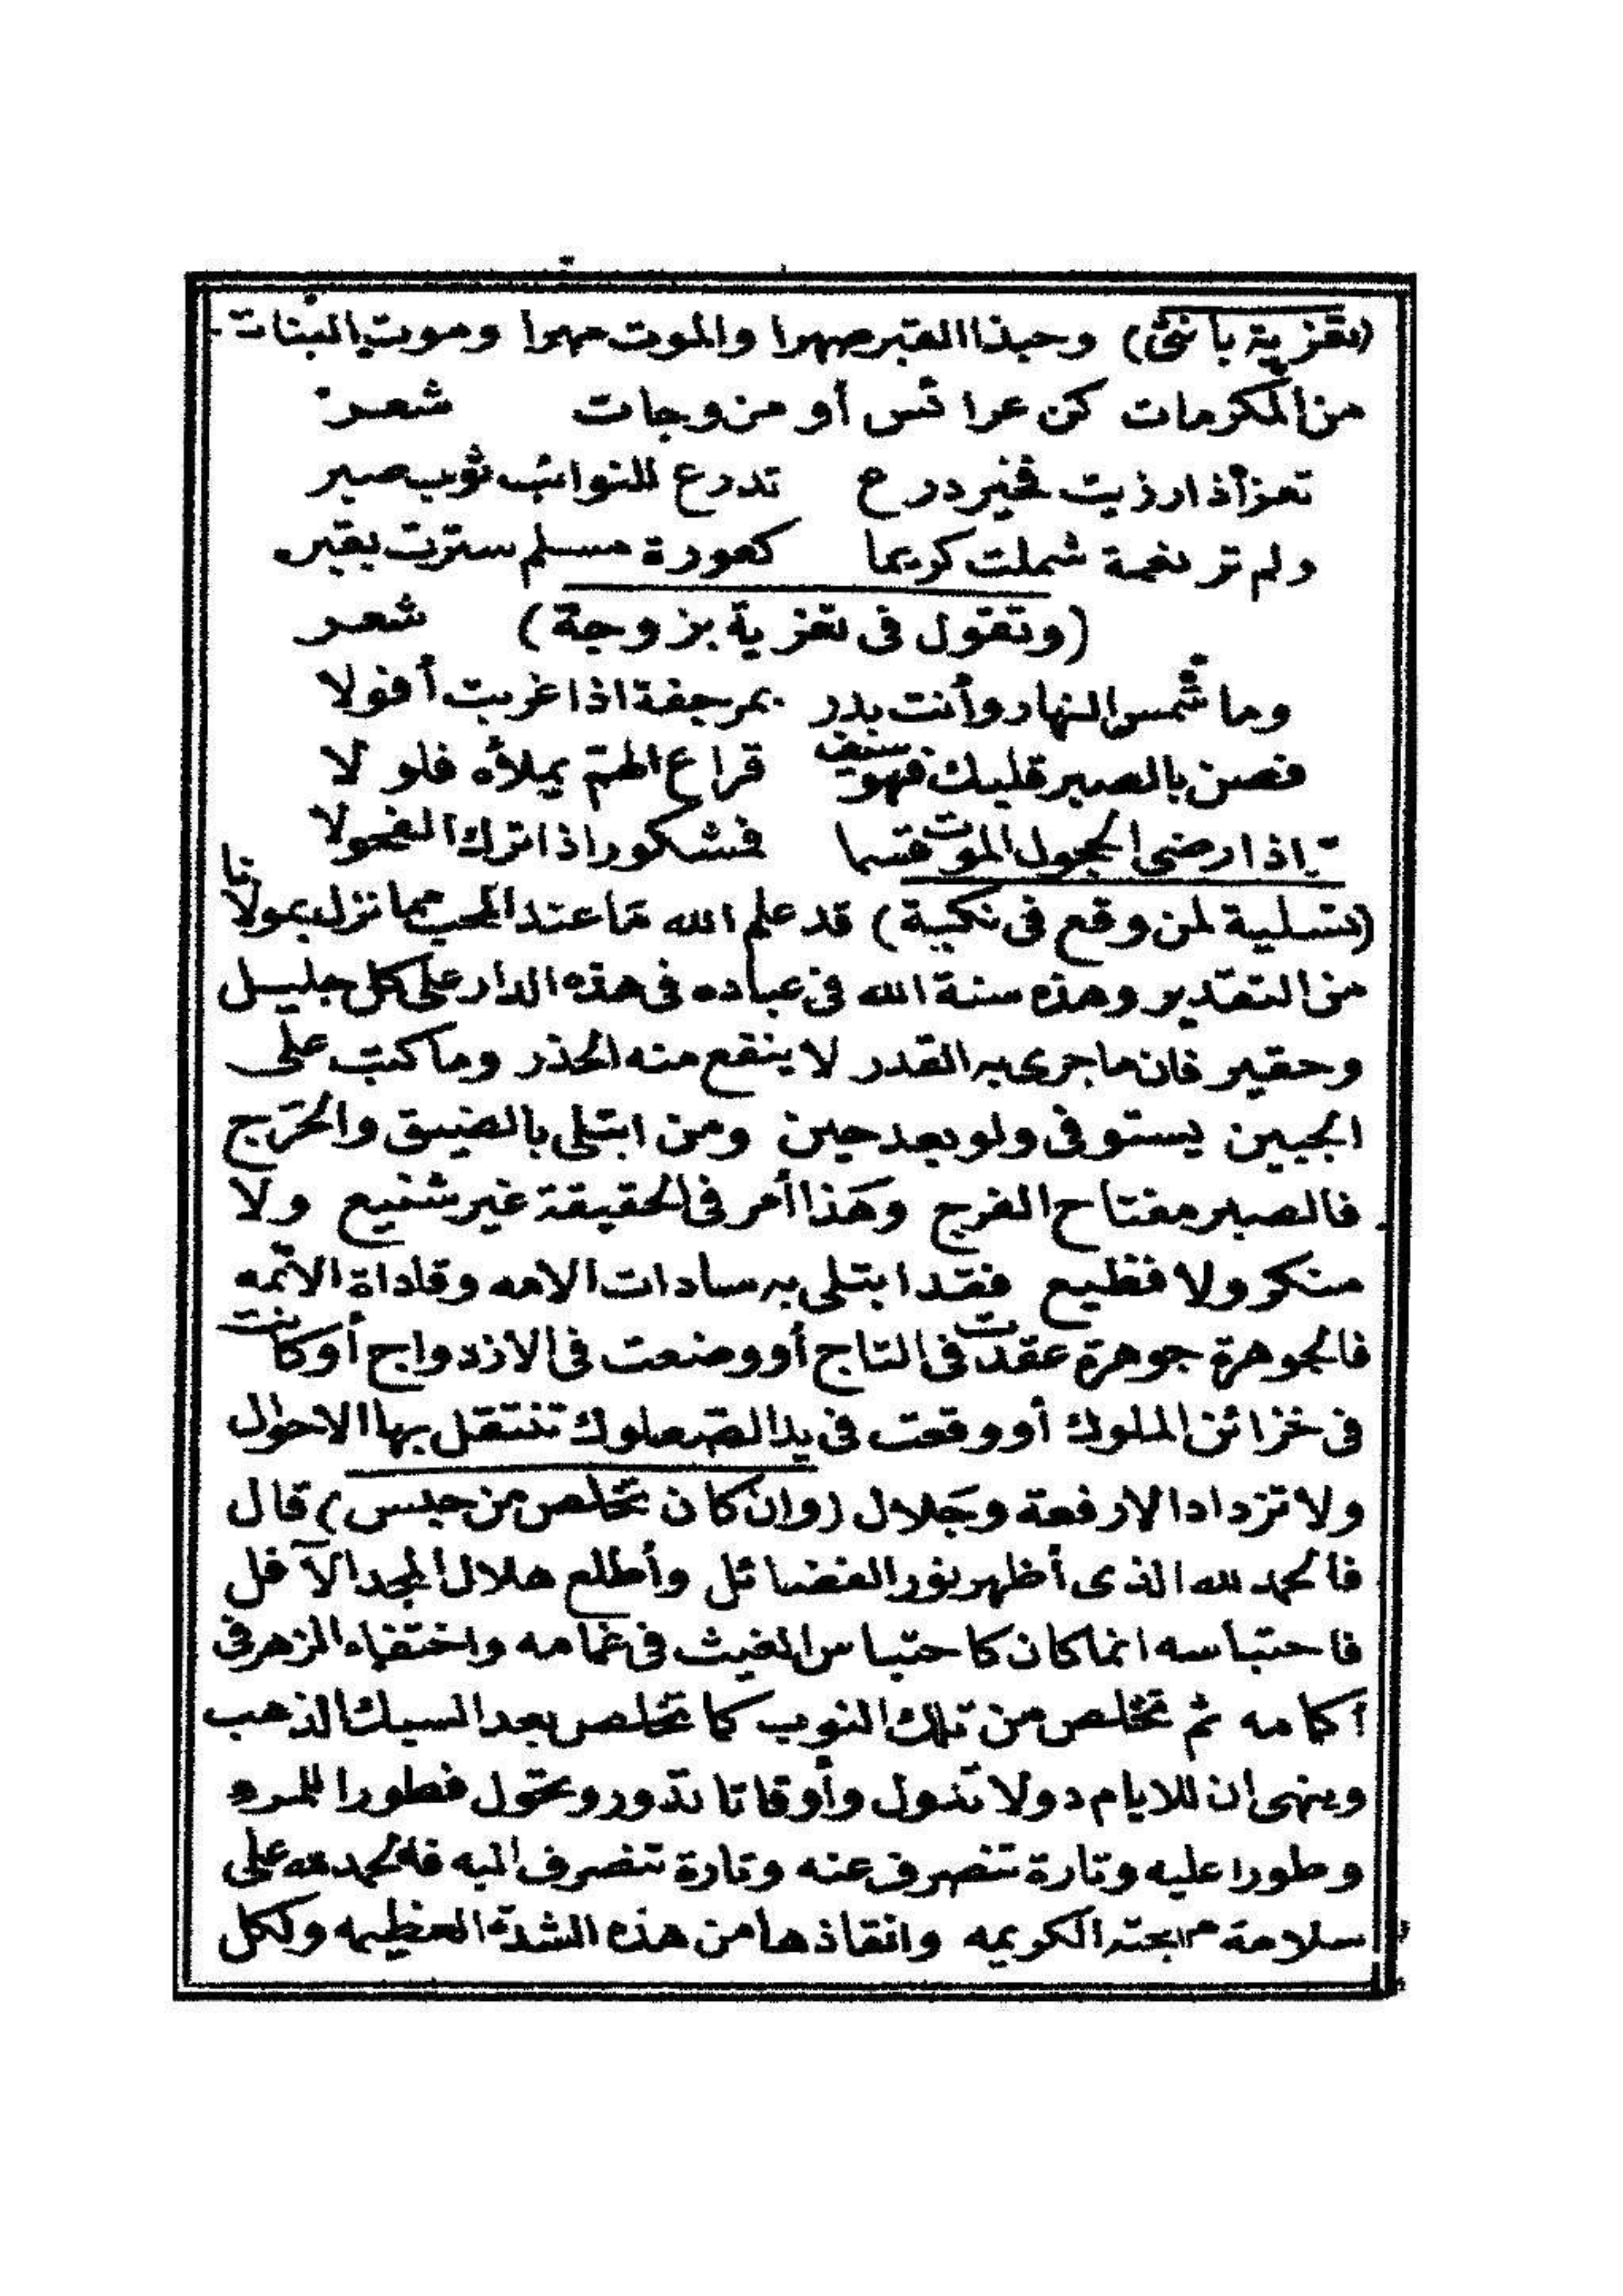 (تعزية بانثى) وحبذا القبر صهرا والموت مهرا وموت البنات
من المكرمات كن عرائس أو مزوجات شعر
تعز أذا رزيت فخير درع تدرع للنوائب ثوب صبر
ولم تر نعمة شملت كريما كعورة مسلم سترت بقبر
(وتقول فى تعزية بزوجة) شعر
وما شمس النهار وأنت بدر بمرجفة اذا غربت أفولا
فصن بالصبر قلبك فهو سيف قراع الهمّ يملأه فلولا
اذا رضى الحجول الموت قسما فشكورا اذا ترك الفحولا
(تسلية لمن وقع فى نكبة) قد علم الله ما عند المحب مما نزل بمولانا
من التقدير وهذه سنة الله فى عباده فى هذه الدار على كل جليل
وحقير فان ما جرى به القدر لا ينفع منه الحذر وما كتب على
الجبين يستوفى ولو بعد حين ومن ابتلى بالضيق والحَرَج
فالصبر مفتاح الفرج وهَذا أمر فى الحقيقة غير شنيع ولا
منكر ولا فظيع فقد ابتلى به سادات الامه وقاداة الائمه
فالجوهرة جوهرة عقدت فى التاج أو وضعت فى الازدواج أو كانت
فى خزائن الملوك أو وقعت فى يد الصعلوك تنتقل بها الاحوال
ولا تزداد الا رفعة وجَلال (وان كان تخلص من حبس) قال
فالحمد لله الذى أظهر نور الفضائل وأطلع هلال المجد الآفل
فاحتباسه انما كان كاحتباس الغيث فى غمامه واختفاء الزهر فى
أكمامه ثم تخلص من تلك النوب كما تخلص بعد السبك الذهب
وينهى ان للايام دولا تدول وأوقاتا تدور وتحول فطورا للمرء
وطورا عليه وتارة تنصرف عنه وتارة تنصرف اليه فالحمد لله على
سلامة مهجته الكريمه وانقاذها من هذه الشدّة العظيمه ولكل